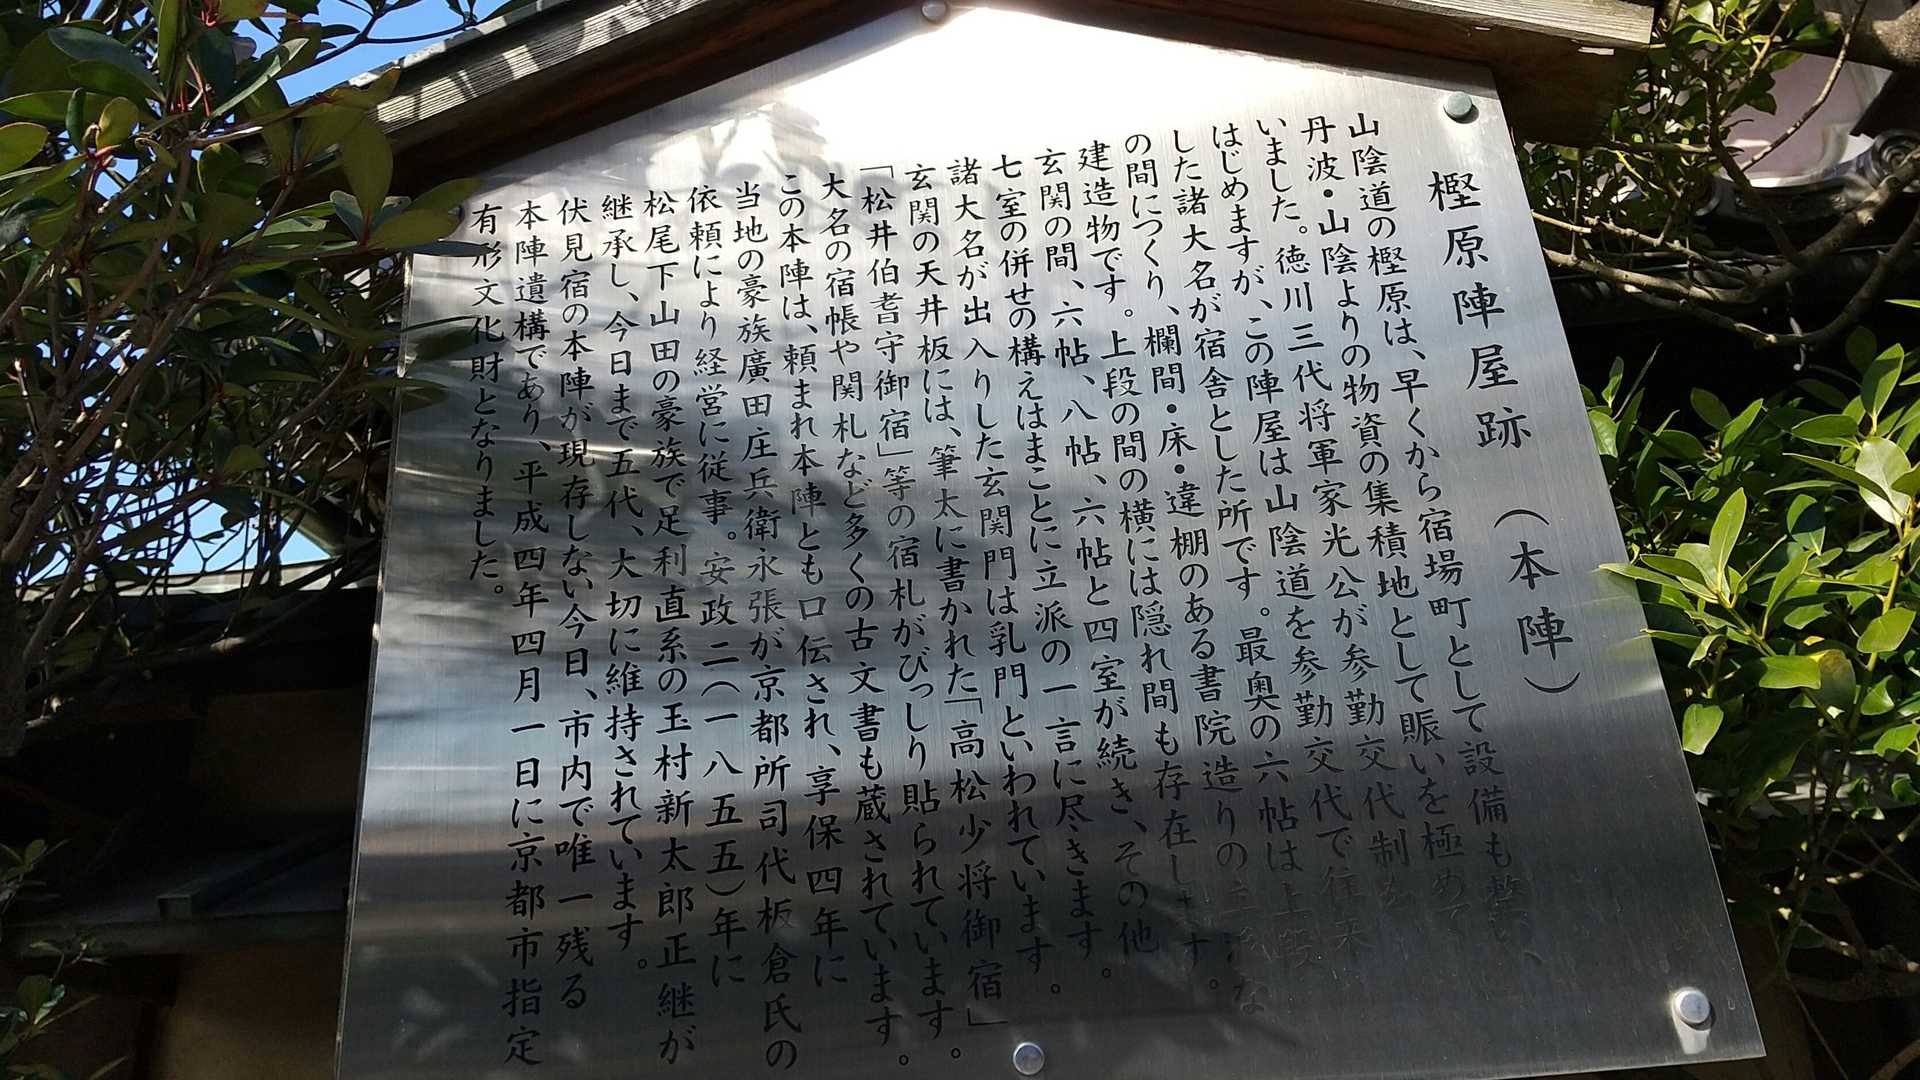 樫原陣屋跡（本陣）
山陰道の樫原は、早くから宿場町として設備も整い
丹波・山陰よりの物資の集積地として賑いを極めて
いました。徳川三代将軍家光公が参勤交代制を
はじめますが、この陣屋は山陰道を参勤交代で往来
した諸大名が宿舎とした所です。最奥の六帖は上段
の間につくり、欄間・床・違棚のある書院造りの立派な
建造物です。上段の間の横には隠れ間も存在します。
玄関の間、六帖、八帖、六帖と四室が続き、その他
七室の併せの構えはまことに立派の一言に尽きます。
諸大名が出入りした玄関門は乳門といわれています。
玄関の天井板には、筆太に書かれた「高松少将御宿」
「松井伯耆守御宿」等の宿札がびっしり貼られています。
大名の宿帳や関札など多くの古文書も蔵されています。
この本陣は、頼まれ本陣とも口伝され、享保四年に
当地の豪族廣田庄兵衛永張が京都所司代板倉氏の
依頼により経営に従事。安政二（一八五五）年に
松尾下山田の豪族で足利直系の玉村新太郎正継が
継承し、今日まで五代、大切に維持されています。
伏見宿の本陣が現存しない今日、市内で唯一残る
本陣遺構であり、平成四年四月一日に京都市指定
有形文化財となりました。